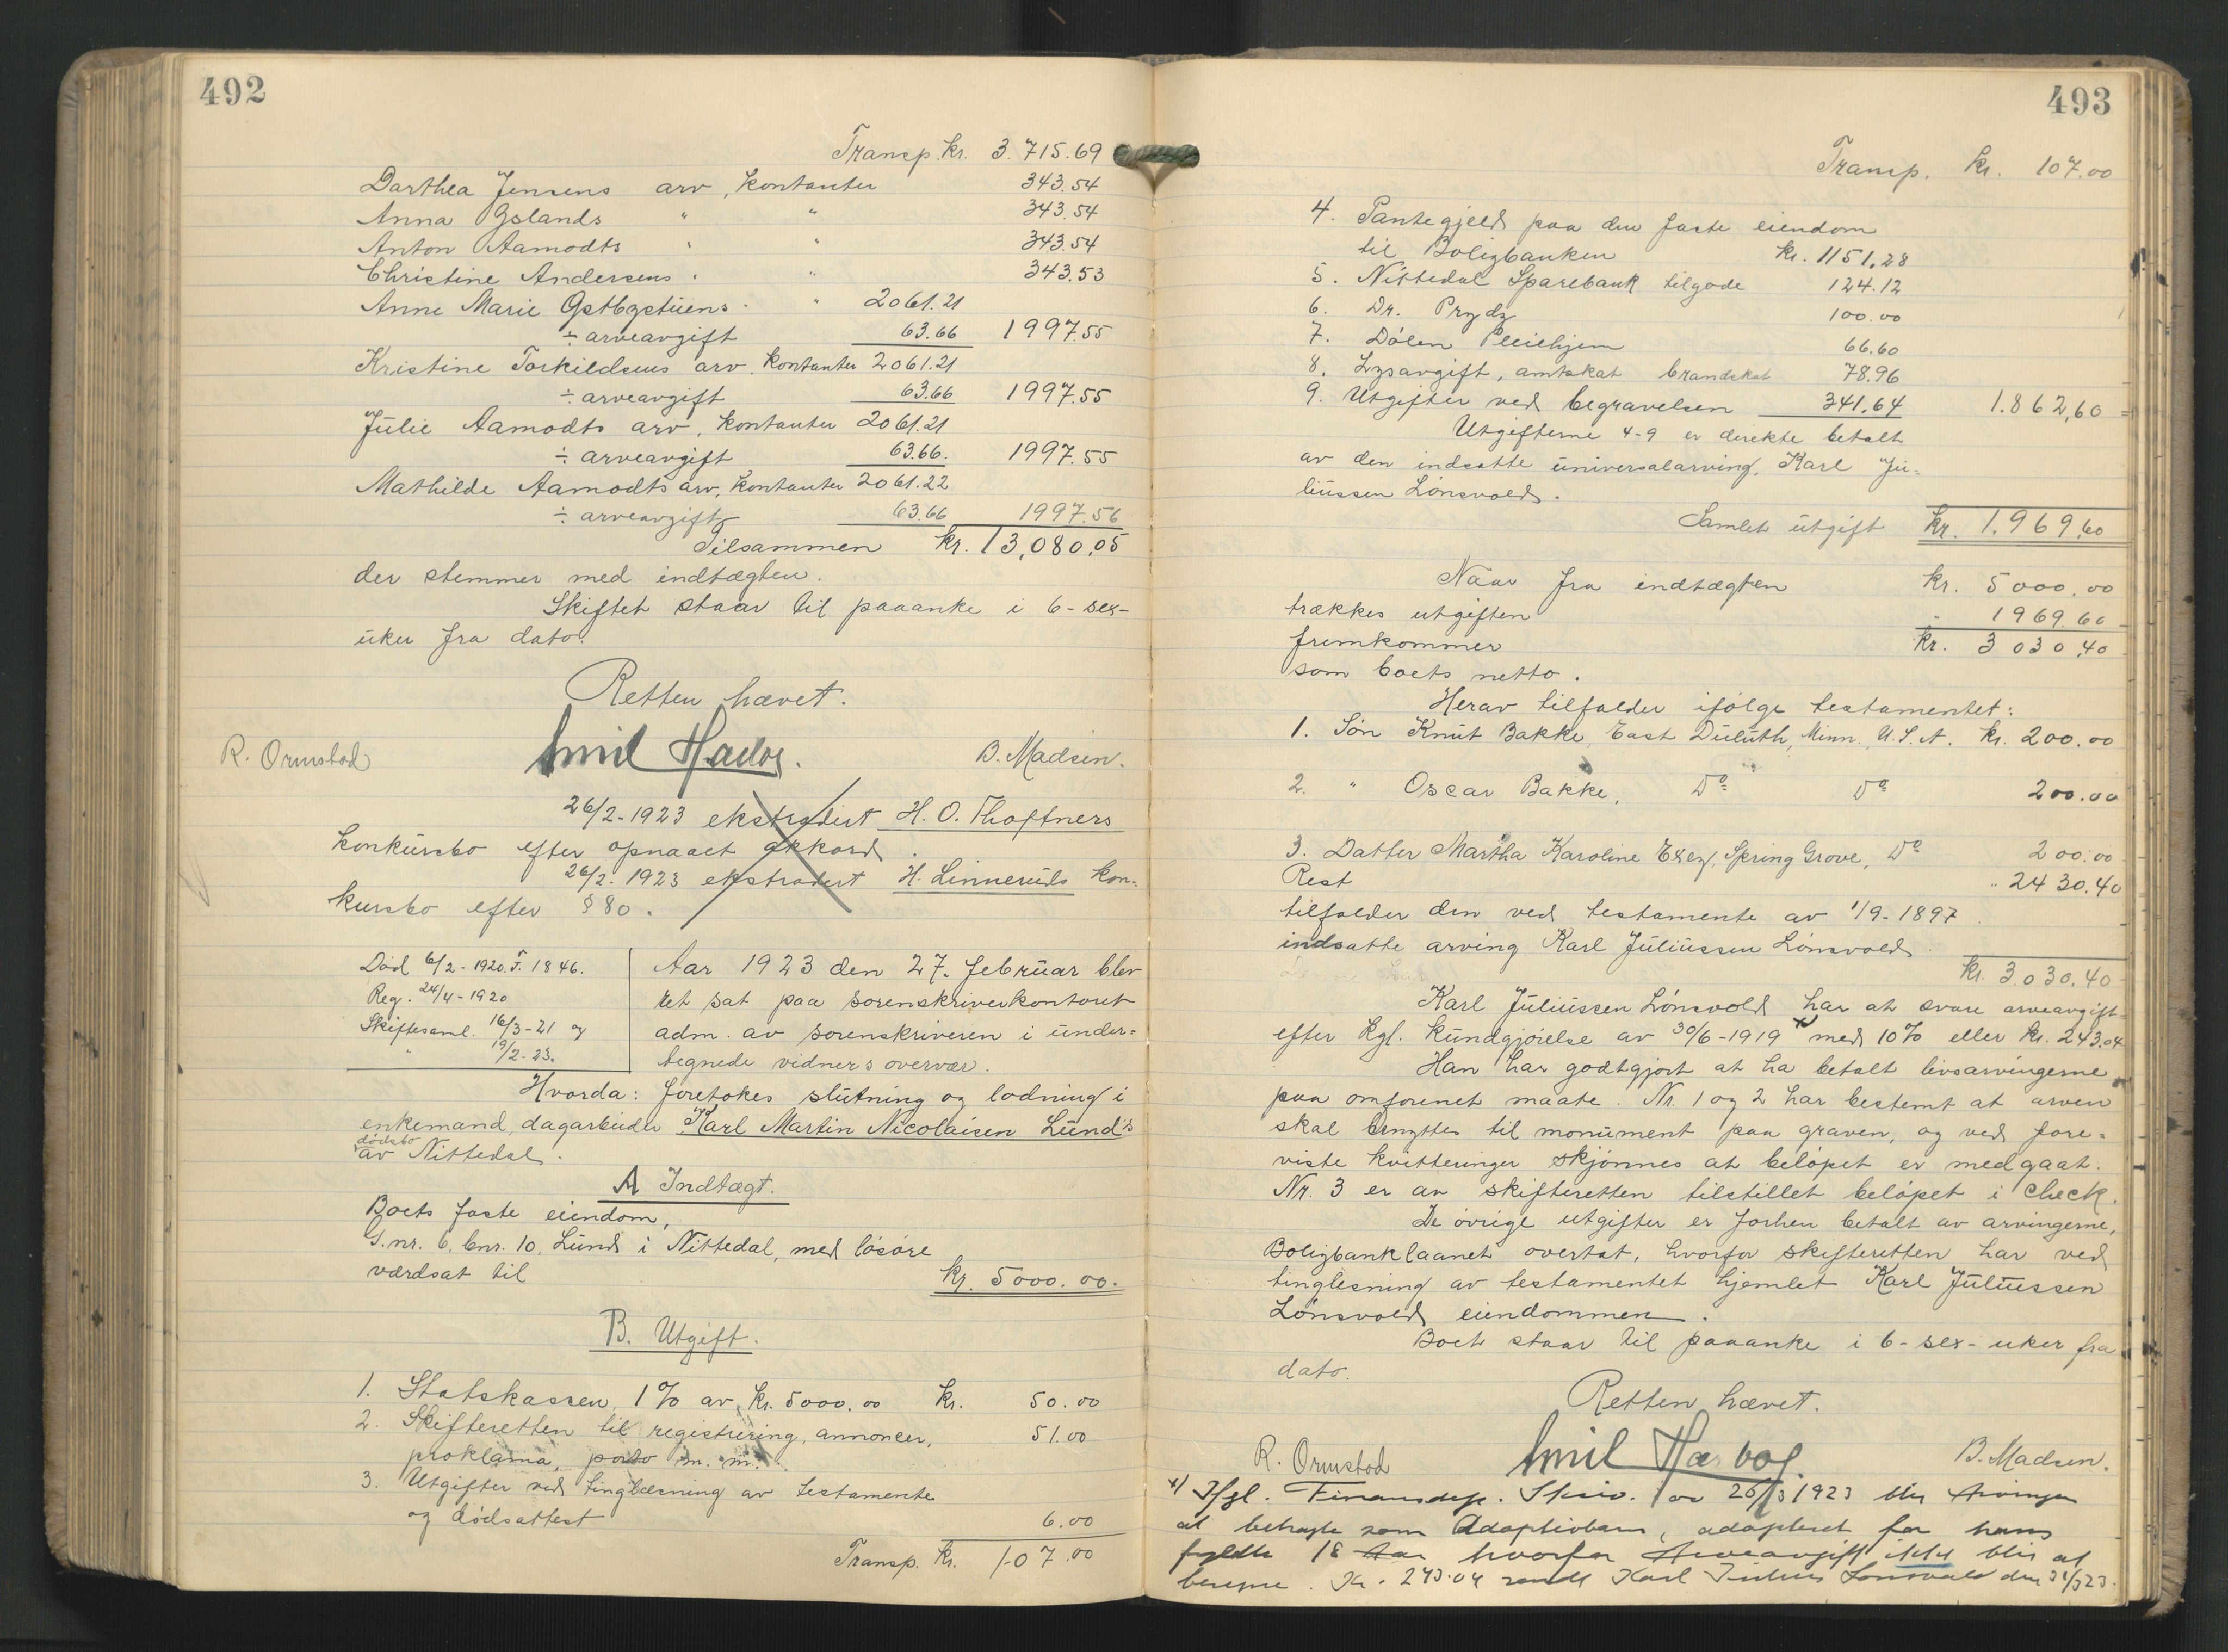 492
Transp. kr. 3.715.69
Darthea Jensens arv, kontanter 343.54
Anna Øslands " " 343.54
Anton Aamodts " " 343.54
Christine Andersens " " 343.53
Anne Marie Østbystuens " " 2061.21
÷ arveavgift 63.66 1997.55
Kristine Torkildsens arv, kontanter 2061.21
÷ arveavgift 63.66 1997.55
Julie Aamodts arv, kontanter 2061.21
÷ arveavgift 63.66. 1997.55
Mathilde Aamodts arv, kontanter 2061.22
÷ arveavgift 63.66 1997.56
Tilsammen kr. 13,080,05
der stemmer med indtægten.
Skiftet staar til paaanke i 6-sex-
uker fra dato.
Retten hævet.
R. Ormstad Emil B. Madsen.
26/2-1923 ekstradert H. O. Thoftners
konkursbo efter opnaaet akkord.
26/2-1923 ekstradert H. Linneruds kon-
kursbo efter § 80.
Død 6/2-1920. F. 1846.
Reg. 24/4-1920
Skiftesaml. 16/3-21 og
" 19/2-23.
Aar 1923 den 27. februar blev
ret sat paa sorenskriverkontoret
adm. av sorenskriveren i under-
tegnede vidners overvær.
Hvorda: foretokes slutning og lodning i
enkemand, dagarbeider Karl Martin Nicolaisen Lund's
dødsbo
av Nittedal.
A Indtægt.
Boets faste eiendom,
G.nr. 6, bnr. 10, Lund i Nittedal, med løsøre
værdsat til kr. 5000.00.
B. Utgift.
1. Statskassen, 1% av kr. 5000.00 kr. 50.00
2. Skifteretten til registrering, annoncer, 51.00
proklama, porto m. m.
3. Utgifter ved tinglæsning av testamente
og dødsattest 6.00
Transp. kr. 107.00
493
Transp. kr. 107.00
4. Pantegjeld paa den faste eiendom
til Boligbanken kr. 1151,28
5. Nittedal Sparebank tilgode 124.12
6. Dr. Prydz 100.00
7. Dølen Pleiehjem 66.60
8. Lysavgift, amtskat brandskat 78.96
9. Utgifter ved begravelsen 341,64 1.862,60
Utgifterne 4-9 er direkte betalt
av den indsatte universalarving, Karl Ju-
liussen Lønsvold.
Samlet utgift kr. 1.969,60
Naar fra indtægten kr. 5000.00
trækkes utgiften " 1969.60
fremkommer kr. 3030,40
som boets netto.
Herav tilfalder ifølge testamentet:
1. Søn Knut Bakke, East Duluth, Minn., U.S.A. kr. 200.00
2. " Oscar Bakke, Do Do 200.00
3. Datter Martha Karoline, Spring Grove, Do 200.00
Rest " 2430.40
tilfalder den ved testamente av 1/9-1897
indsatte arving Karl Juliussen Lønsvold.
kr. 3.030.40
Karl Juliussen Lønsvold har at svare arveavgift
efter kgl. kundgjørelse av 30/6-1919 x med 10% eller kr. 243.04
Han har godtgjort at ha betalt livsarvingerne
paa omforenet maate. Nr. 1 og 2 har bestemt at arven
skal benyttes til monument paa graven, og ved fore-
viste kvitteringer skjønnes at beløpet er medgaat.
Nr. 3 er av skifteretten tilstillet beløpet i check.
De øvrige utgifter er forhen betalt av arvingerne,
Boligbanklaanet overtat, hvorfor skifteretten har ved
tinglesning av testamentet hjemlet Karl Juliussen
Lønsvold eiendommen.
Boet staar til paaanke i 6-sex-uker fra
dato.
Retten hævet.
R. Ormstad Emil B. Madsen.
x) Ifgl. Finansdep. Skriv. av 26/3 1923 blir Arvingen
at betragte som Adoptivbarn, adopteret før hans
fyldte 18 Aar hvorfor Arveavgift ikke blir at
beregne. Kr. 243.04 sendt Karl Julius Lønsvold den 31/3 23.